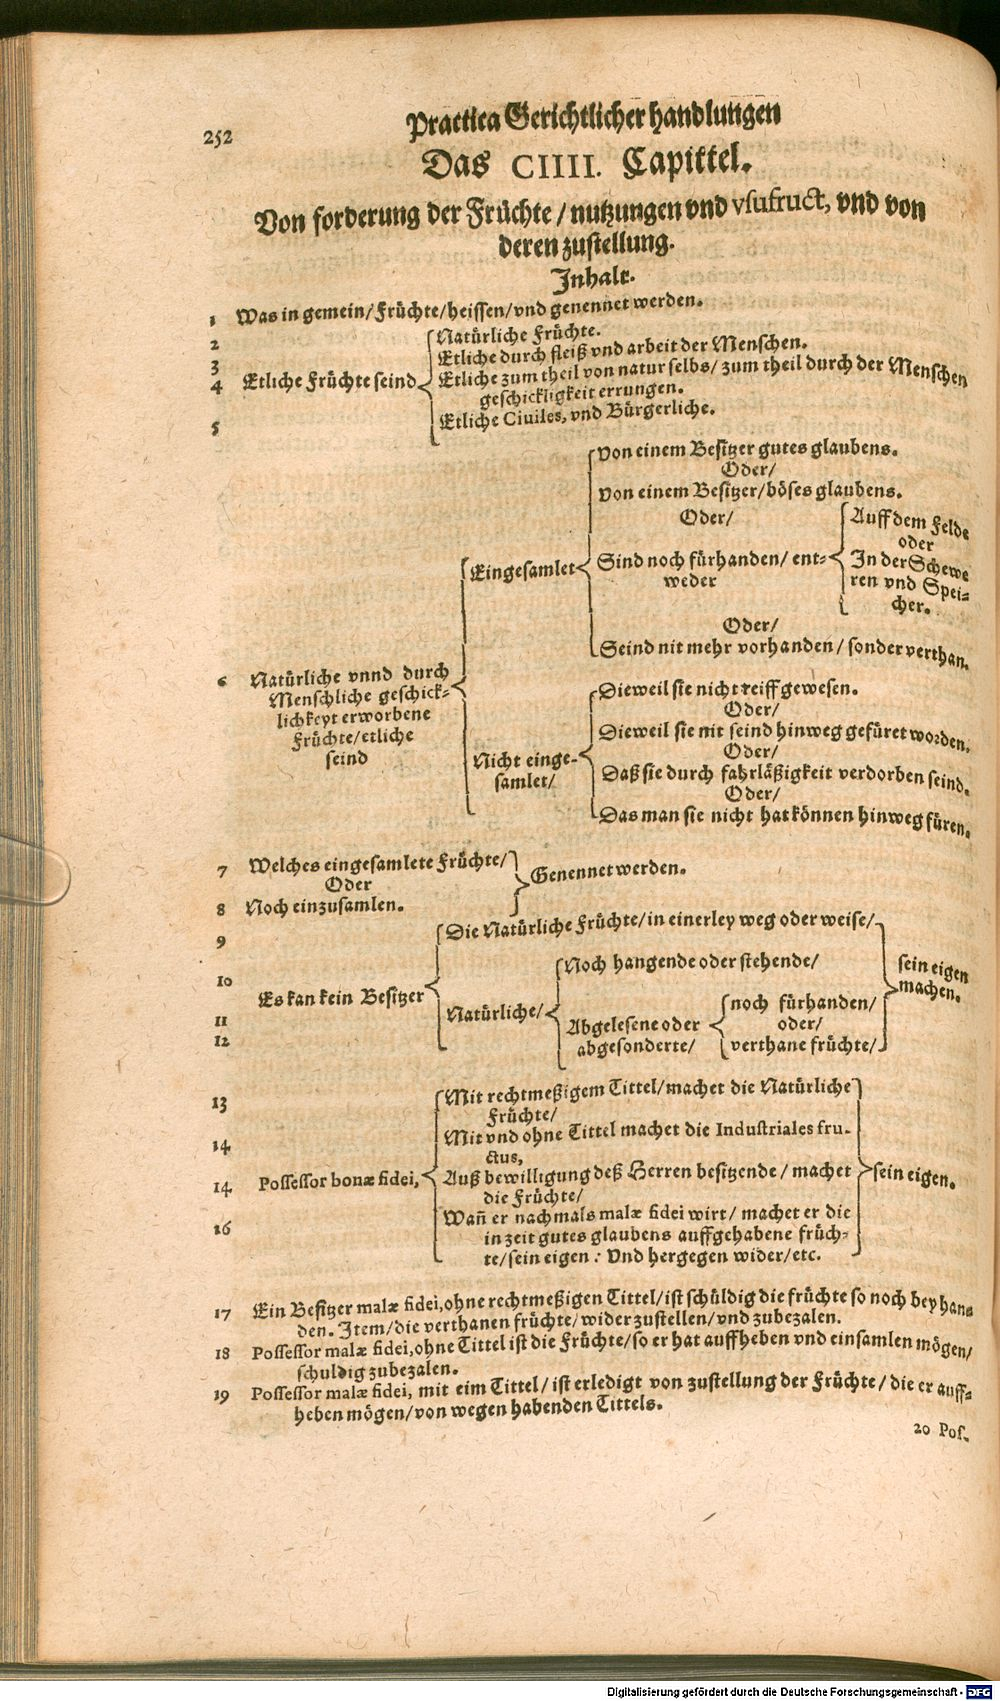 252
Practica Gerichtlicher handlungen
Das CIIII. Capittel.
Von forderung der Früchte / nutzungen vnd vsufruct, vnd von
deren zustellung.
Inhalt.
1 Was in gemein/Früchte/heissen/vnd genennet werden.
2 Natürliche Früchte.
3 Etliche durch fleiß vnd arbeit der Menschen.
4 Etliche Früchte seind
Etliche zum theil von natur selbs/ zum theil durch der Menschen
geschickligkeit errungen.
5 Etliche Ciuiles, vnd Bürgerliche.
6 Natürliche vnnd durch
Menschliche geschick-
lichkeyt erworbene
Früchte/etliche
seind
Eingesamlet
von einem Besitzer gutes glaubens.
Oder/
von einem Besitzer/böses glaubens.
Oder/
Sind noch fürhanden/ ent-
weder
Auff dem Felde
oder
In der Schewe
ren vnd Spei-
cher.
Oder/
Seind nit mehr vorhanden/ sonder verthan.
Nicht einge-
samlet/
Dieweil sie nicht reiff gewesen.
Oder/
Dieweil sie nit seind hinweg gefüret worden.
Oder/
Daß sie durch fahrläßigkeit verdorben seind.
Oder/
Das man sie nicht hat können hinweg füren.
7 Welches eingesamlete Früchte/
Oder
8 Noch einzusamlen.
Genennet werden.
9
10
11
12
Es kan kein Besitzer
Die Natürliche Früchte/in einerley weg oder weise/
Natürliche/
Noch hangende oder stehende/
Abgelesene oder
abgesonderte/
noch fürhanden/
oder/
verthane früchte/
sein eigen
machen.
Possessor bonæ fidei,
13 Mit rechtmeßigem Tittel/machet die Natürliche
Früchte/
14 Mit vnd ohne Tittel machet die Industriales fru-
ctus,
14 Auß bewilligung deß Herren besitzende / machet
die Früchte/
16 Wañ er nachmals malæ fidei wirt/ machet er die
in zeit gutes glaubens auffgehabene früch-
te/sein eigen: Vnd hergegen wider/etc.
sein eigen.
17 Ein Besitzer malæ fidei,ohne rechtmeßigen Tittel/ist schüldig die früchte so noch bey han-
den. Item/die verthanen früchte/wider zustellen/vnd zubezalen.
18 Possessor malæ fidei,ohne Tittel ist die Früchte/so er hat auffheben vnd einsamlen mögen/
schuldig zubezalen.
19 Possessor malæ fidei, mit eim Tittel/ist erledigt von zustellung der Früchte/die er auff-
heben mögen/von wegen habenden Tittels.
20 Pos-
Digitalisierung gefördert durch die Deutsche Forschungsgemeinschaft - DFG